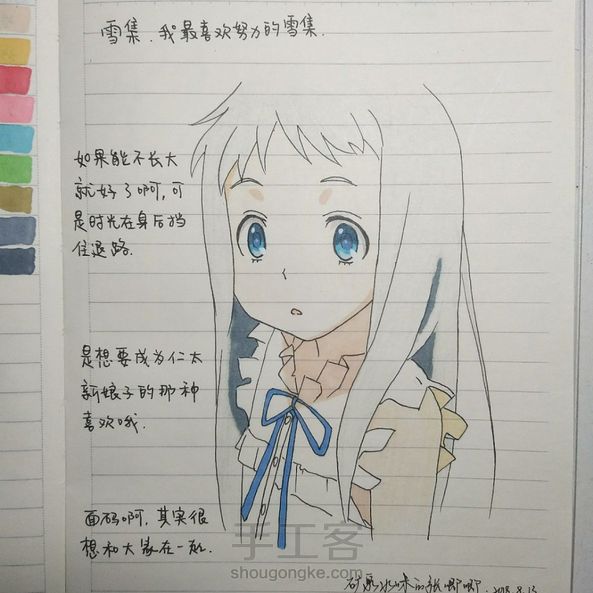 雪集,我最喜欢努力的雪集.
如果能不长大
就好了啊,可
是时光在身后挡
住退路.
是想要成为仁太
新娘子的那种
喜欢哦.
面码啊,其实很
想和大家在一起.
手工客
shougongke.com